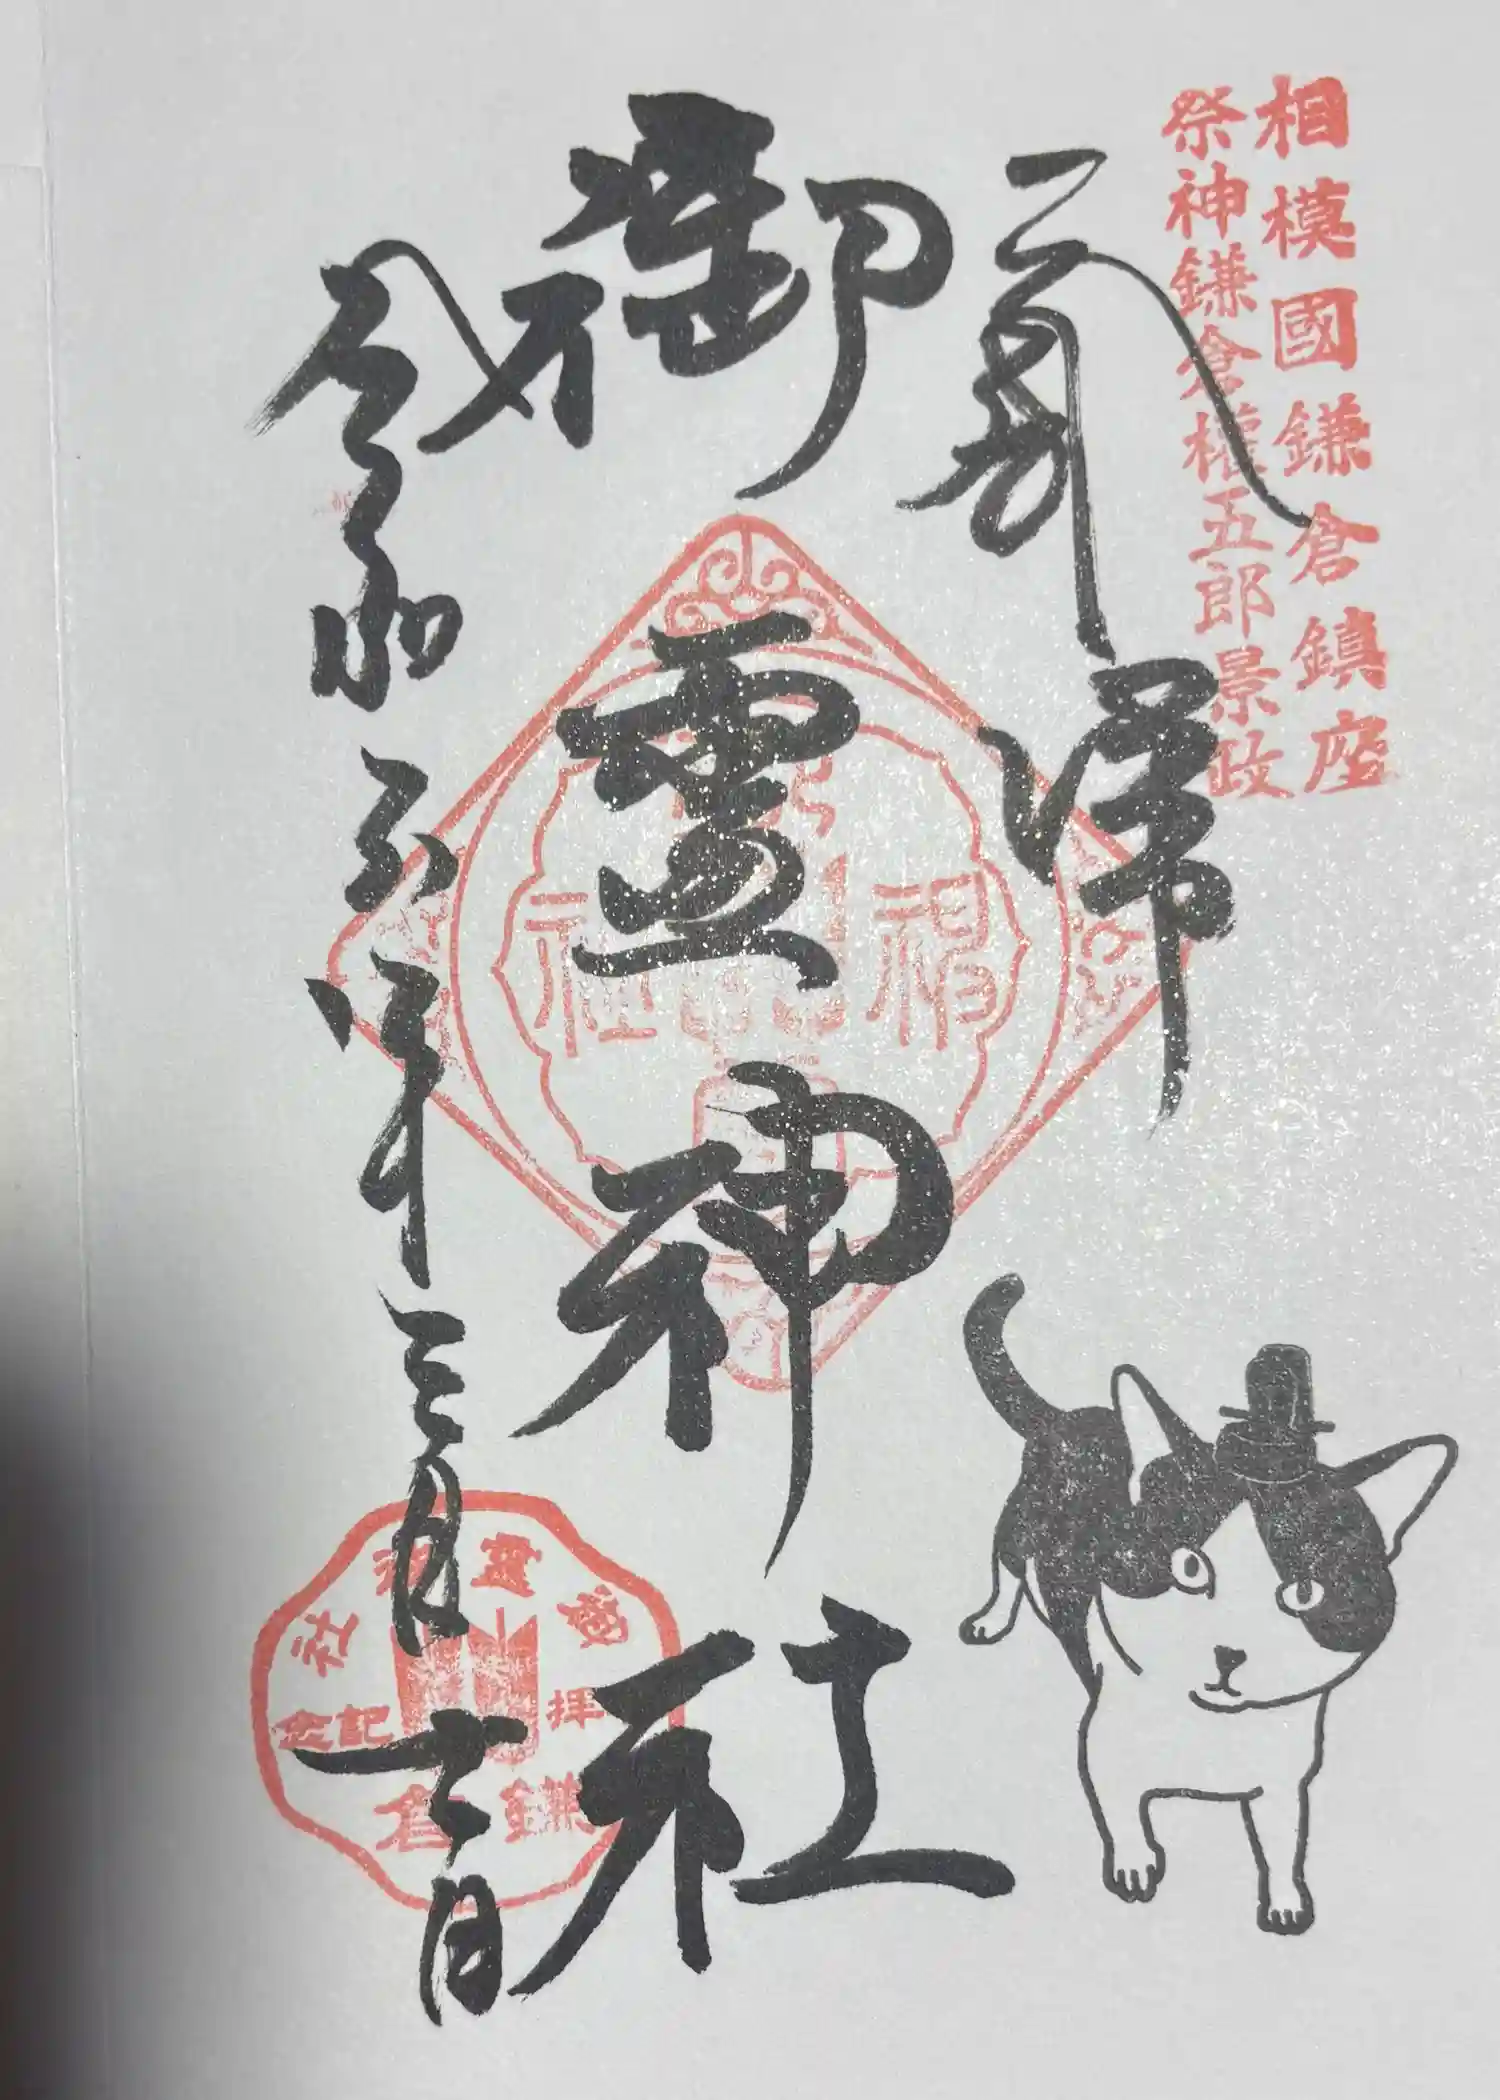 相模國鎌倉鎮座
祭神鎌倉權五郎景政
奉拝
御靈神社
令和五年三月十二日
御靈神社
拝
記念
鎌倉
福
社